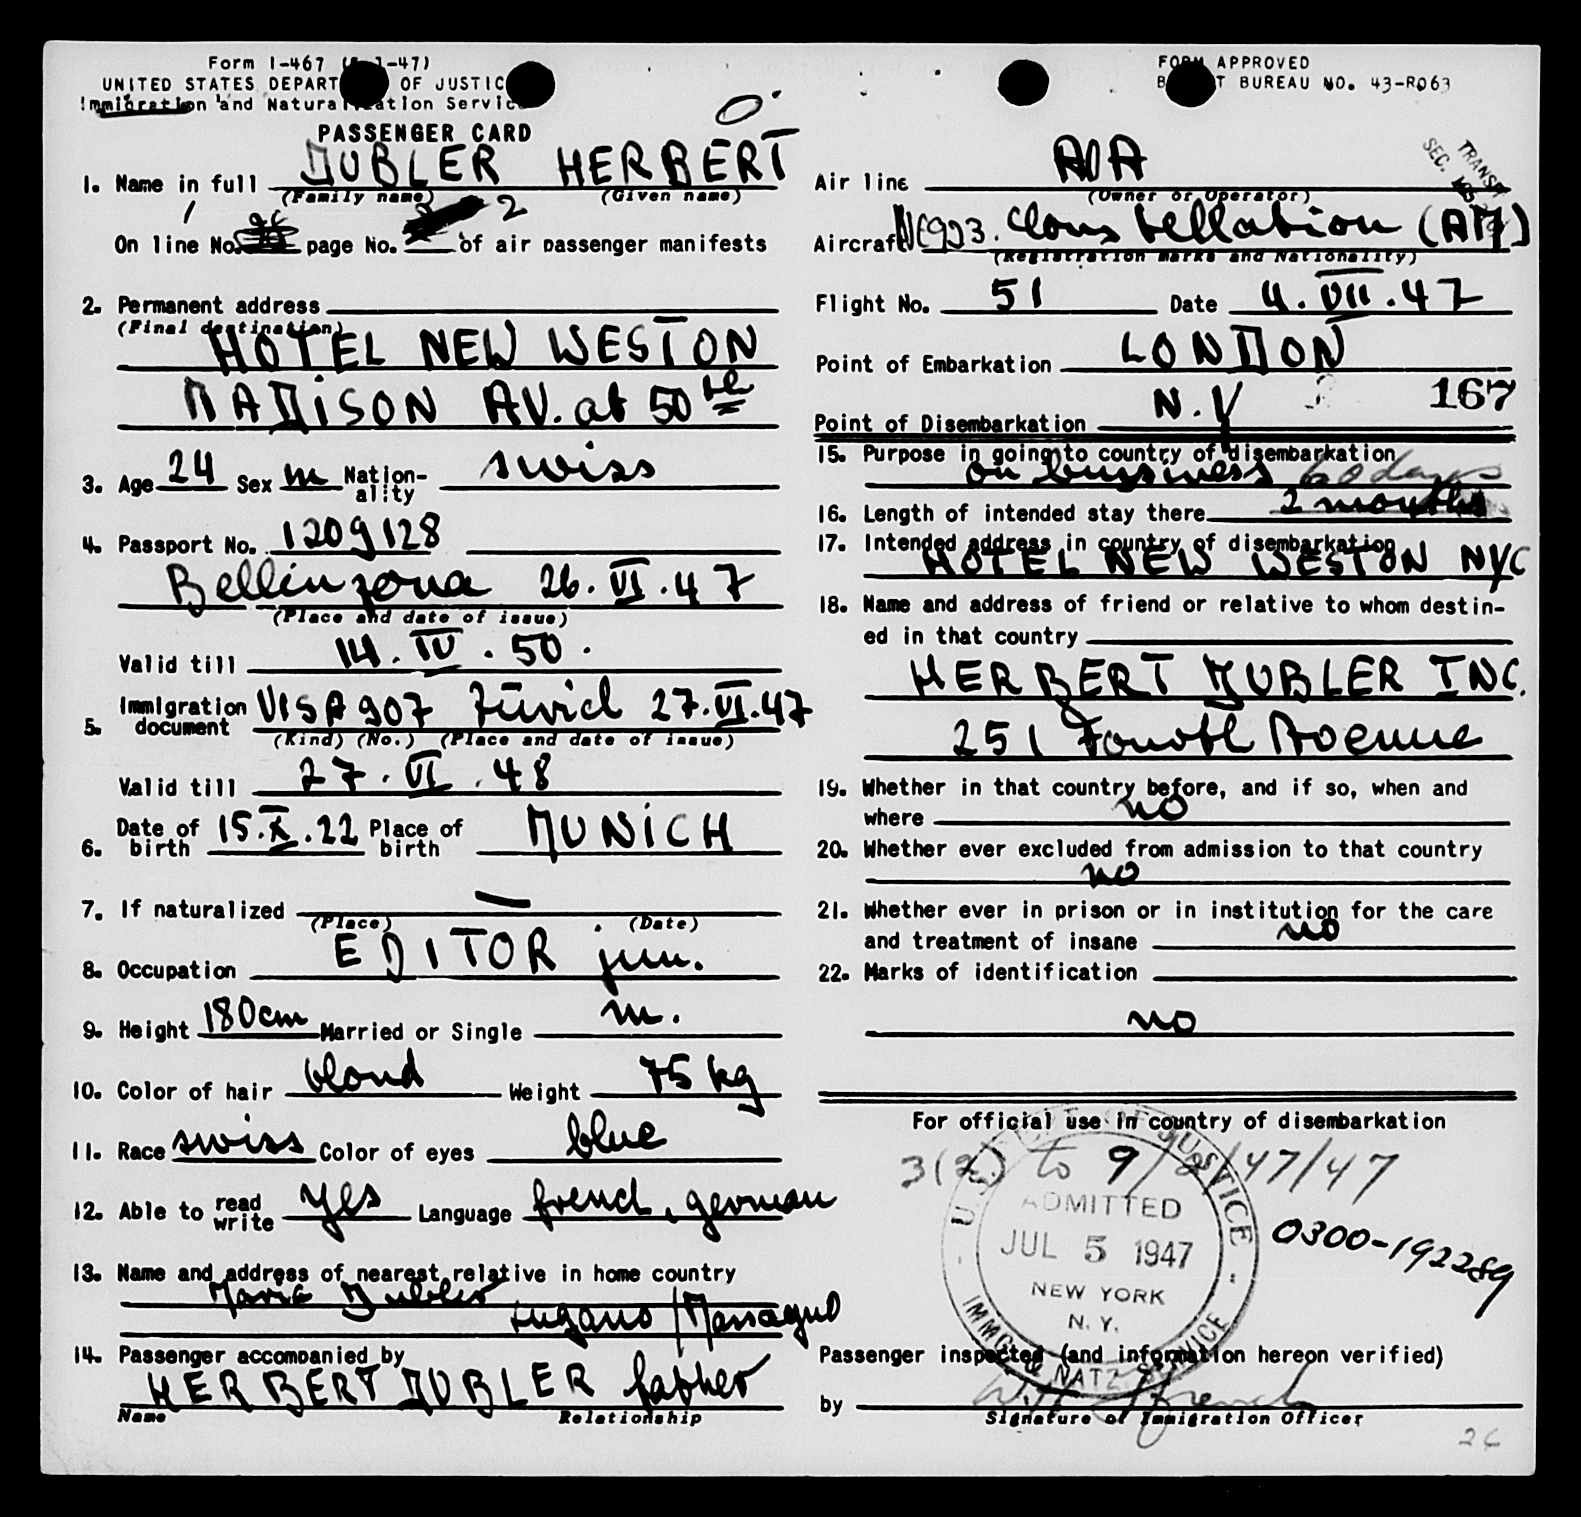 Form I-467 ( -47)
UNITED STATES DEPART OF JUSTIC
Immigration and Naturalization Service
PASSENGER CARD
1. Name in full DUBLER HERBERT
(Family name) (Given name)
On line No. page No. 2 of air passenger manifests
2. Permanent address
(Final destination)
HOTEL NEW WESTON
MADISON AV. at 50th
3. Age 24 Sex m Nation-ality swiss
4. Passport No. 1209128
Bellinzona 26.VI.47
(Place and date of issue)
Valid till 14.IV.50.
5. Immigration document VISA 907 Zürich 27.VI.47
(Kind) (No.) (Place and date of issue)
Valid till 27.VI.48
6. Date of birth 15.X.22 Place of birth MUNICH
7. If naturalized —
(Place) (Date)
8. Occupation EDITOR jun.
9. Height 180cm Married or Single m.
10. Color of hair blond Weight 75 kg
11. Race swiss Color of eyes blue
12. Able to read write yes Language french, german
13. Name and address of nearest relative in home country
Maria Dubler
Lugano / Massagno
14. Passenger accompanied by
HERBERT DUBLER father
Name Relationship
FORM APPROVED
B T BUREAU NO. 43-R063
TRANSP
SEC.
Air line AOA
(Owner or Operator)
Aircraft Constellation (AM)
(Registration marks and Nationality)
Flight No. 51 Date 4.VII.47
Point of Embarkation LONDON
167
Point of Disembarkation N.Y
15. Purpose in going to country of disembarkation
on bussiness 60 days
16. Length of intended stay there 2 months
17. Intended address in country of disembarkation
HOTEL NEW WESTON NYC
18. Name and address of friend or relative to whom destin-
ed in that country
HERBERT DUBLER INC.
251 Fourth Avenue
19. Whether in that country before, and if so, when and
where no
20. Whether ever excluded from admission to that country
no
21. Whether ever in prison or in institution for the care
and treatment of insane no
22. Marks of identification
no
For official use in country of disembarkation
3(2) to 9/2/47/47
U.S. DEPT. OF JUSTICE
ADMITTED
JUL 5 1947
NEW YORK
N. Y.
IMMIG. & NATZ. SERVICE
0300-192289
Passenger inspected (and information hereon verified)
by
Signature of Immigration Officer
26